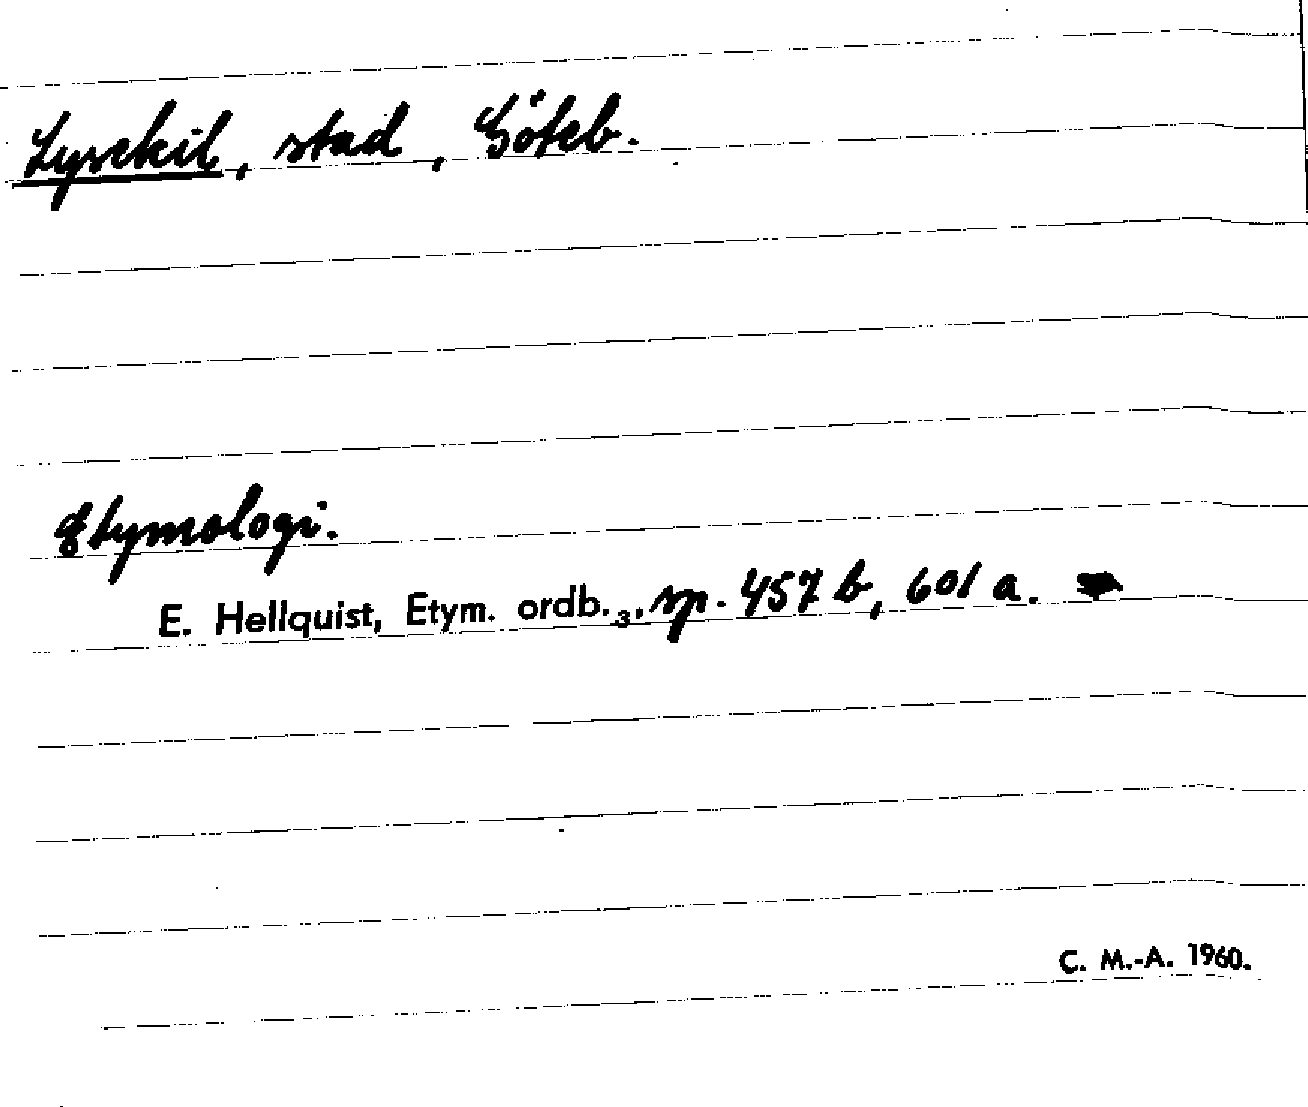 Lysekil, stad, Göteb.
Etymologi.
E. Hellquist, Etym. ordb.₃, sp. 457 b, 601 a.
C. M.-A. 1960.